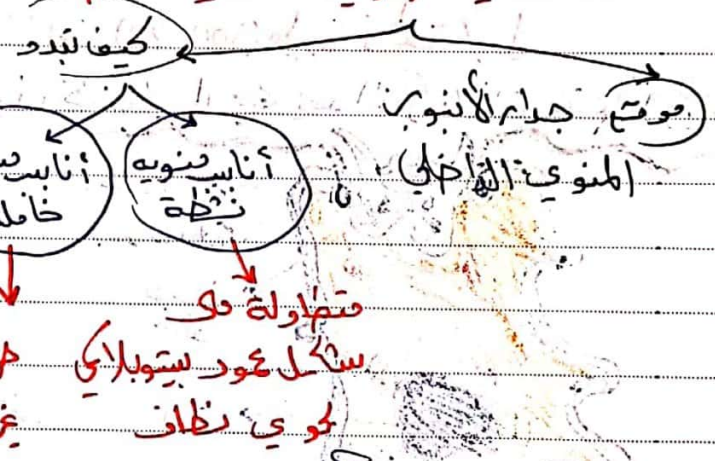 كيف تبدو
موقع جدار الأنبوب
المنوي الداخلي
أنابيب منوية
نشطة
أنابيب
متطاولة على
شكل عمود سيتوبلازمي
يحوي نطاف